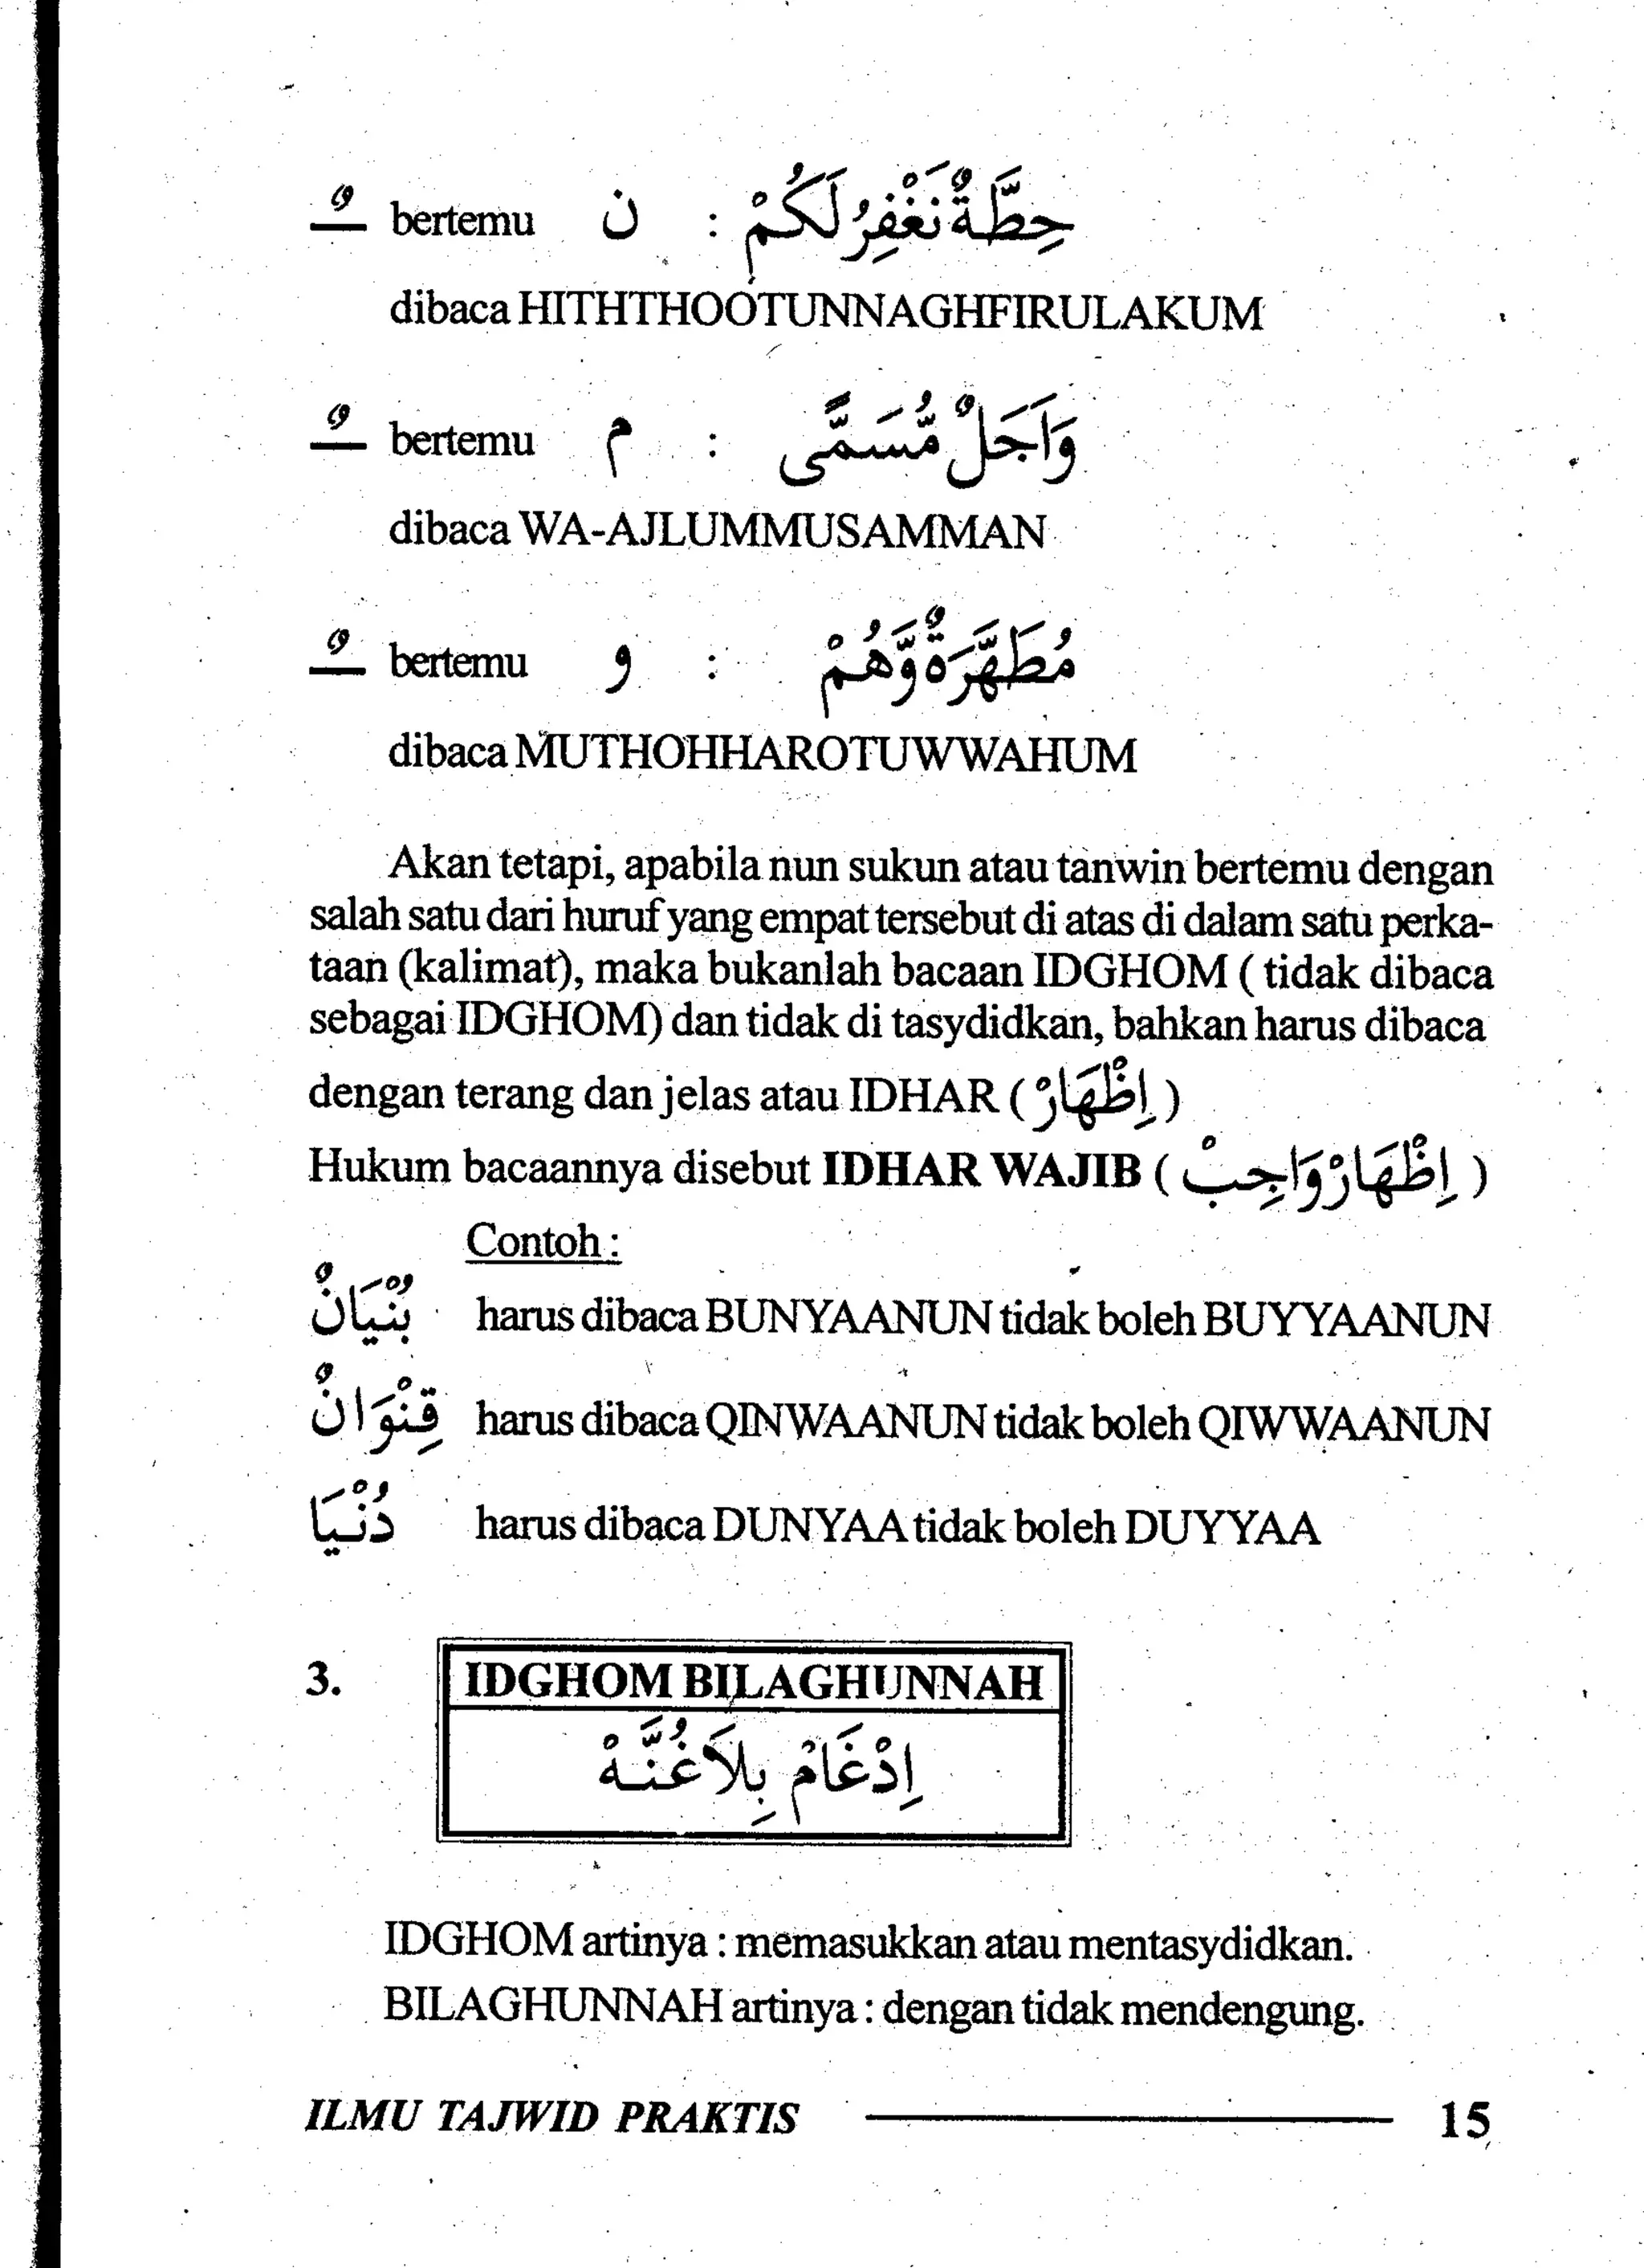 ـٌ bertemu ن : حِطَّةٌ نَّغْفِرْلَكُمْ
dibaca HITHTHOOTUNNAGHFIRULAKUM
ـٌ bertemu م : وَاَجَلٌ مُّسَمًّى
dibaca WA-AJLUMMUSAMMAN
ـٌ bertemu و : مُطَهَّرَةٌ وَّهُمْ
dibaca MUTHOHHAROTUWWAHUM
Akan tetapi, apabila nun sukun atau tanwin bertemu dengan
salah satu dari huruf yang empat tersebut di atas di dalam satu perka-
taan (kalimat), maka bukanlah bacaan IDGHOM ( tidak dibaca
sebagai IDGHOM) dan tidak di tasydidkan, bahkan harus dibaca
dengan terang dan jelas atau IDHAR ( اِظْهَارْ )
Hukum bacaannya disebut IDHAR WAJIB ( اِظْهَارْ وَاجِبْ )
Contoh :
بُنْيَانٌ harus dibaca BUNYAANUN tidak boleh BUYYAANUN
قِنْوَانٌ harus dibaca QINWAANUN tidak boleh QIWWAANUN
دُنْيَا harus dibaca DUNYAA tidak boleh DUYYAA
3. IDGHOM BILAGHUNNAH
اِدْغَامْ بِلاَغُنَّهْ
IDGHOM artinya : memasukkan atau mentasydidkan.
BILAGHUNNAH artinya : dengan tidak mendengung.
ILMU TAJWID PRAKTIS 15